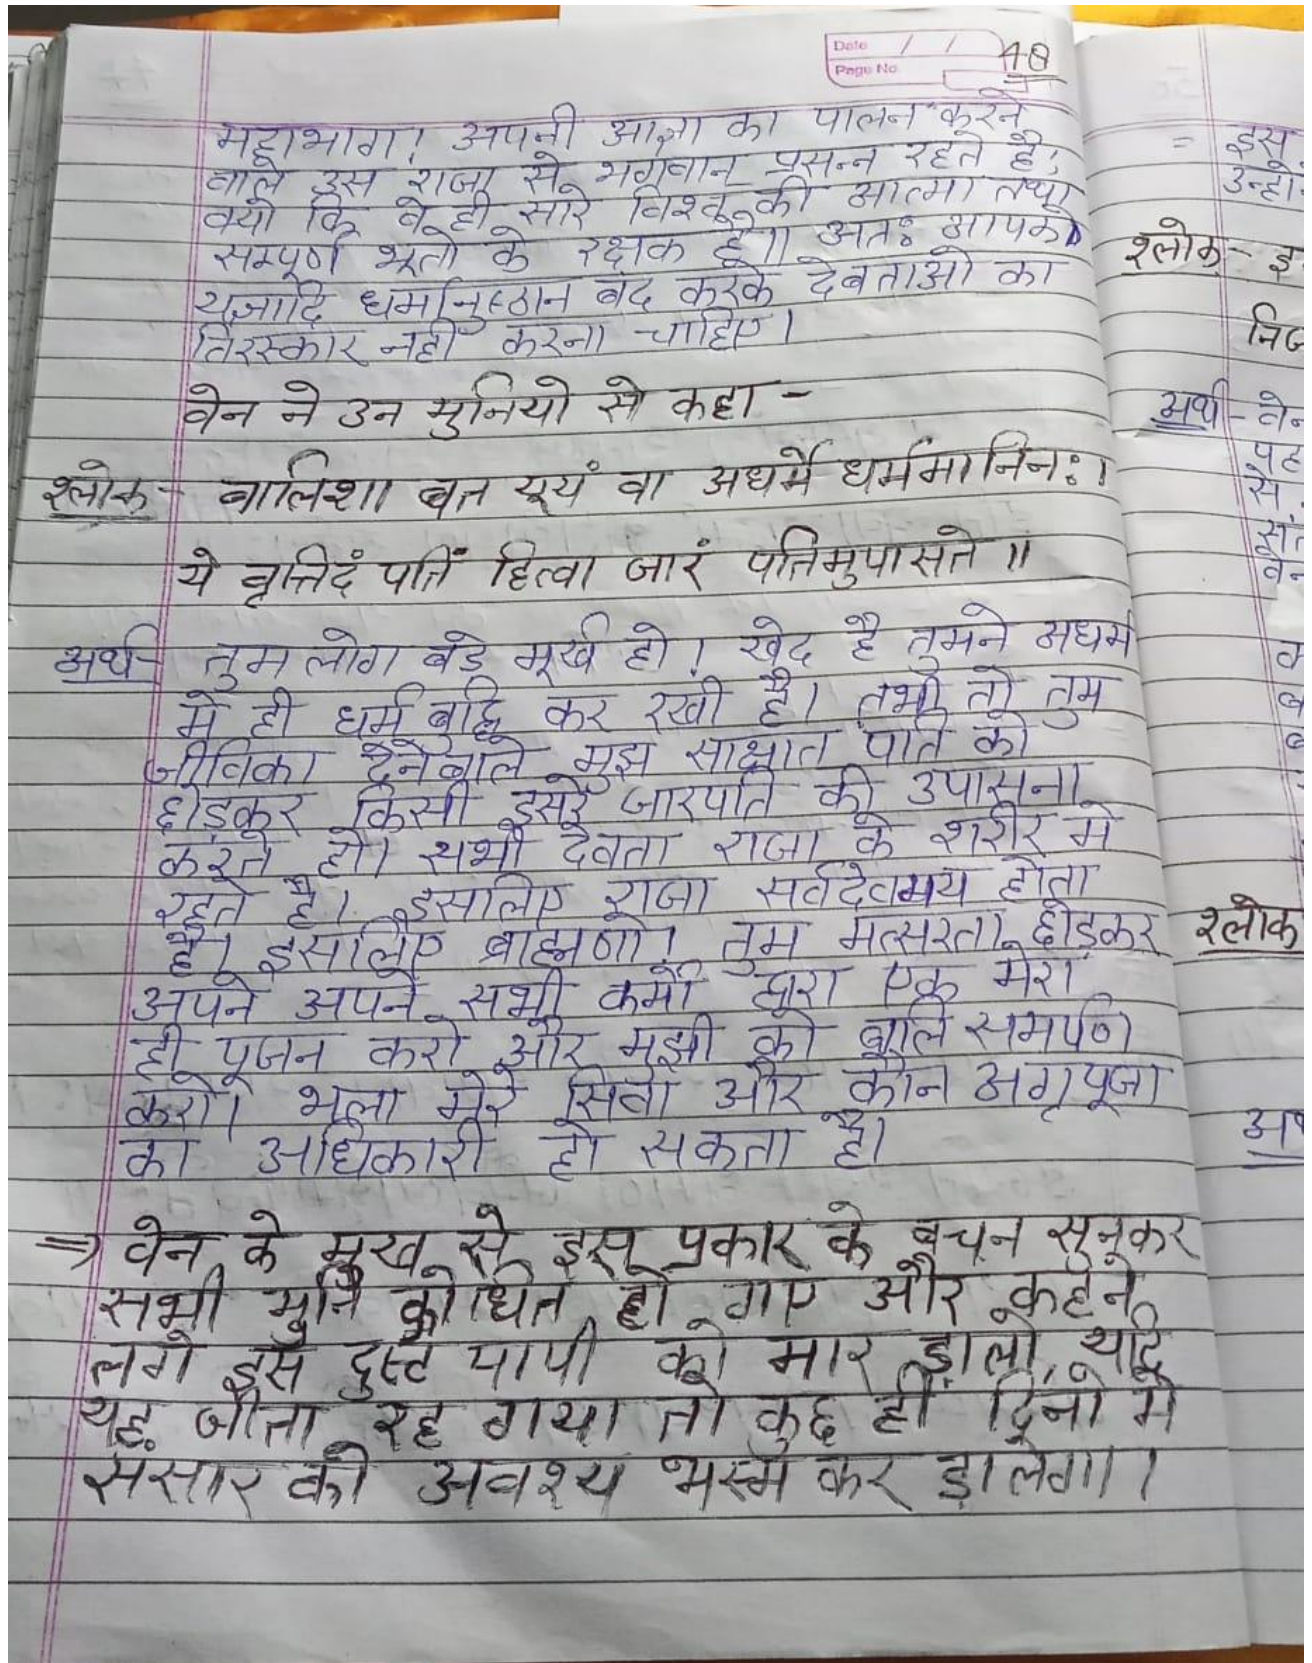 Date / /
Page No.
48
महाभाग! अपनी आज्ञा का पालन करने
वाले उस राजा से भगवान प्रसन्न रहते है;
क्यो कि वे ही सारे विश्व की आत्मा तथा
सम्पूर्ण भूतो के रक्षक है।। अतः आपको
यज्ञादि धर्मानुष्ठान बंद करके देवताओ का
तिरस्कार नही करना चाहिए।
वेन ने उन मुनियो से कहा -
श्लोक - बालिशा बत यूयं वा अधर्मे धर्ममानिनः।
ये वृत्तिदं पतिं हित्वा जारं पतिमुपासते॥
अर्थ - तुम लोग बडे मूर्ख हो! खेद है तुमने अधर्म
मे ही धर्म बुद्धि कर रखी है। तभी तो तुम
जीविका देनेवाले मुझ साक्षात पति को
छोड़कर किसी दुसरे जारपति की उपासना
करते हो। सभी देवता राजा के शरीर मे
रहते है। इसलिए राजा सर्वदेवमय होता
है। इसलिए ब्राह्मणो! तुम मत्सरता छोड़कर
अपने अपने सभी कर्मो द्वारा एक मेरा
ही पूजन करो और मुझी को बलि समर्पण
करो। भला मेरे सिवा और कौन अग्रपूजा
का अधिकारी हो सकता है।
=> वेन के मुख से इस प्रकार के बचन सुनकर
सभी मुनि क्रोधित हो गए और कहने
लगे इस दुस्ट पापी को मार ड़ालो, यदि
यह जीता रह गया तो कुछ ही दिनो मे
संसार को अवश्य भस्म कर ड़ालेगा।
= इस
श्लोक - इ
अर्थ - वेन
श्लोक